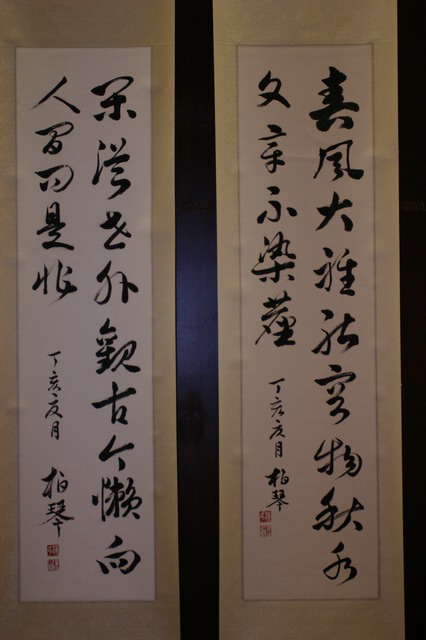 春風大雅能容物秋水
文章不染塵
丁亥夏月 柏琴
閑從世外觀古今懶向
人間問是非
丁亥夏月
柏琴